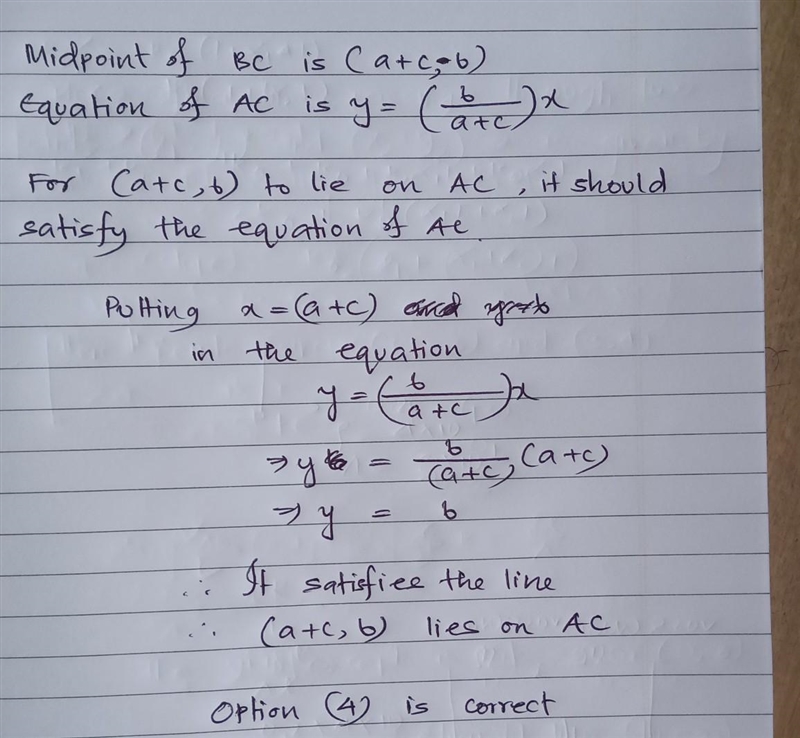 Midpoint of BC is (a+c, b)
Equation of AC is y = (b/(a+c))x
For (a+c, b) to lie on AC, it should
satisfy the equation of AC.
Putting x = (a+c) and
in the equation
y = (b/(a+c))x
⇒ y = b/(a+c) (a+c)
⇒ y = b
∴ It satisfies the line
∴ (a+c, b) lies on AC
Option (4) is correct